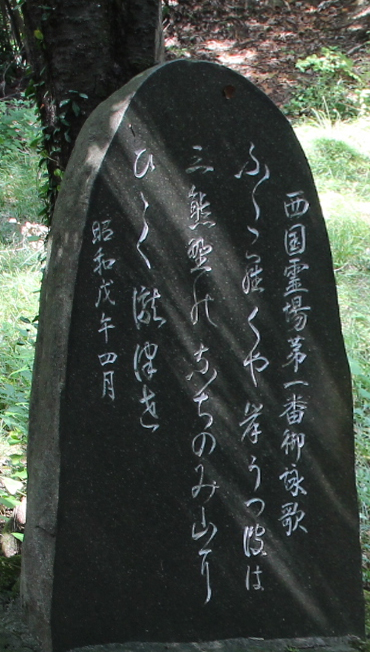 西国霊場第一番御詠歌
ふしく羅くや岸うつ波は
三熊野の那ちのみ山尓
ひゝく瀧津せ
昭和戊午四月